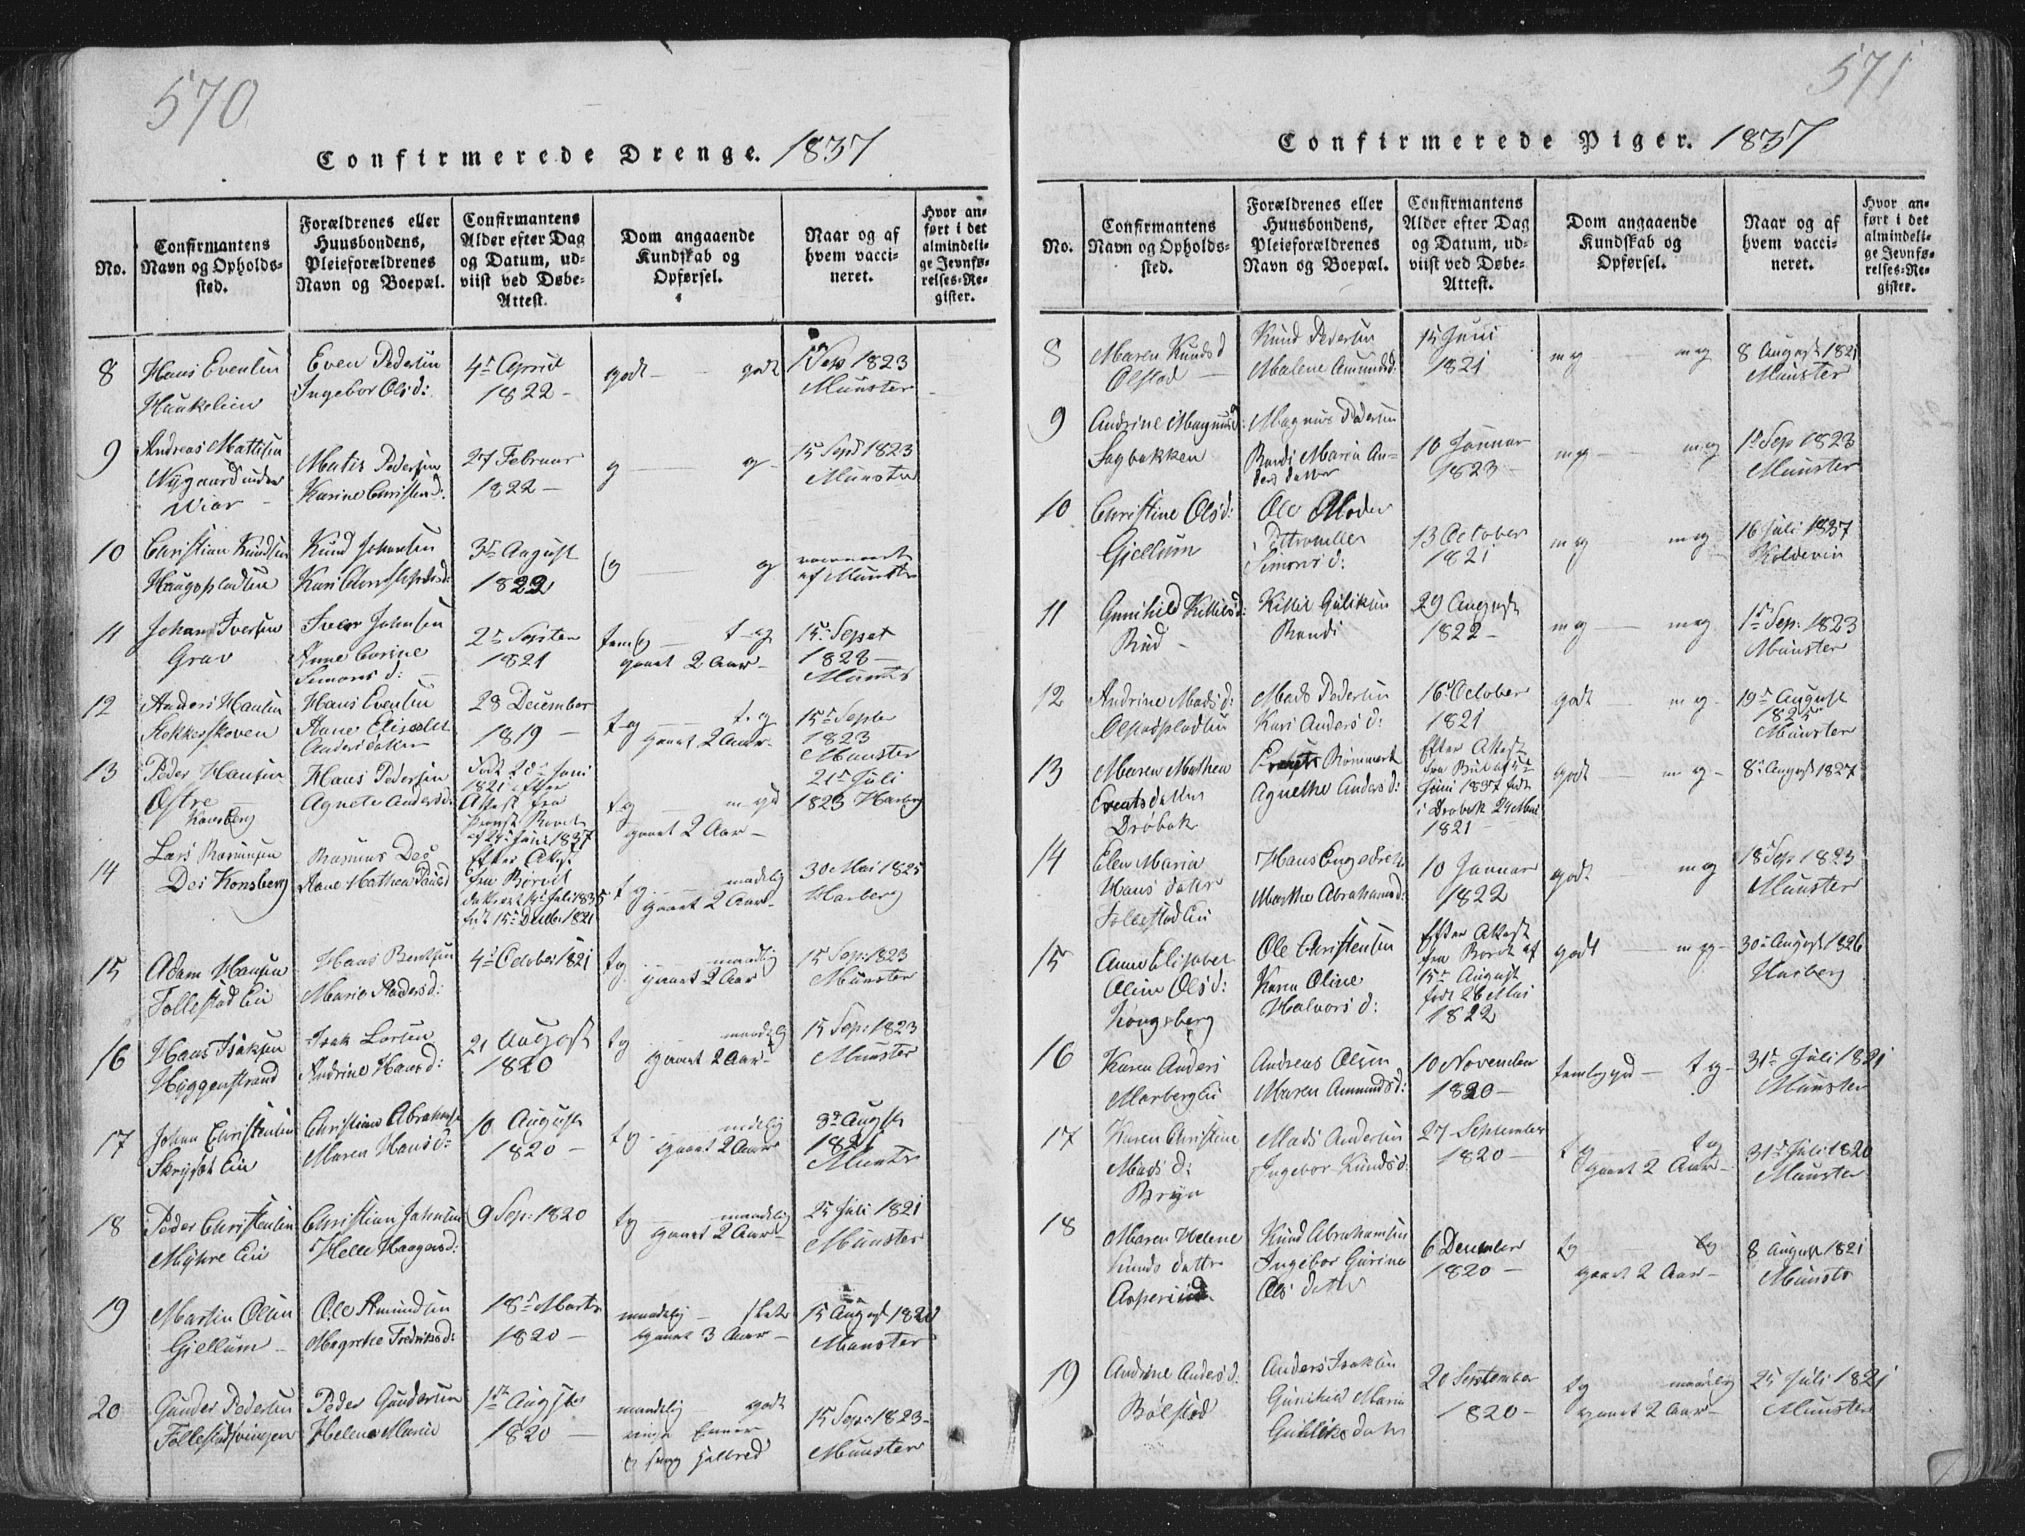 570
Confirmerede Drenge. 1837
No.
Confirmantens
Navn og Opholds-
sted.
Forældrenes eller
Huusbondens,
Pleieforældrenes
Navn og Boepæl.
Confirmantens
Alder efter Dag
og Datum, ud-
viist ved Døbe-
Attest.
Dom angaaende
Kundskab og
Opførsel.
Naar og af
hvem vacci-
neret.
Hvor an-
ført i det
almindeli-
ge Jevnfø-
relses-Re-
gister.
8
Hans Evensen
Even Pedersen
Ingebor Olsd:
4de April
1822 -
godt - godt
Sep 1823
Munster
9
Andreas Mattisen
Nygaard under
Viar
Matis Pedersen
Karine Christend:
27 Februar
1822 -
g g
15 Sept 1823
Munster
10
Christian Knudsen
Haugspladsen
Knud Johnsen
Kari
August
1822
g g
af Munster
11
Johan Iversen
Grav
Iver Johnsen
Anne Corine
Simons d:
1821
gaaet 2 Aar -
15 Sept
1823 -
Munster
12
Anders Hansen
Stokkerskoven
Hans Evensen
Anne Elisabet
Andersdatter
28 December
1819 -
t.g t.g
gaaet 2 Aar -
15 Septe
1823
Munster
13
Peder Hansen
Østre
Konsberg
Hans Pedersen
Agnete Andersd:
1821 efter
Attest fra
tg mgd
gaaet 2 Aar -
21 Juli
1823 Harberg
14
Lars Rasmusen
Des Konsberg
Rasmus Des
Ane Mathea
Efter Attest
fra Børvet
fodt 15 Decbr 1821
tg maadelig
gaaet 2 Aar
30 Mai 1825
Harberg
15
Adam Hansen
Tollestad Eie
Hans Bentsen
Maria Andersd:
4de October 1821
tg maadlig
gaaet 2 Aar
15 Sep: 1823
Munster
16
Hans Isaksen
Hyggenstrand
Isak Larsen
Andrine Hansd:
21 August
1820
tg maadelig
gaaet 2 Aar
15 Sep: 1823
Munster
17
Johan Christensen
Christian Abrahamse
Maren Hansd:
10 August
1820 -
tg
gaaet 2 Aar
Augst
1821
Munster
18
Peder Christensen
Myhre Eie
Christian Johnsen
Helle Haagensd:
9 Sep: 1820
tg maadelig
gaaet 2 Aar -
25 Juli 1821
Munster
19
Martin Olsen
Gjellum -
Ole Amundsen
Magrethe Fredriksd:
18 Marts
1820 -
maadelig - slet
gaaet 3 Aar -
15 August 1820
Munster
20
Gunder Pedersen
Tollestadsvingen
Peder Gundersen
Helene Marie
1st Augst
1820 -
maadelig godt
15 Sep: 1823 -
Munster
571
Confirmerede Piger. 1837
No.
Confirmantens
Navn og Opholds-
sted.
Forældrenes eller
Huusbondens,
Pleieforældrenes
Navn og Boepæl.
Confirmantens
Alder efter Dag
og Datum, ud-
viist ved Døbe-
Attest.
Dom angaaende
Kundskab og
Opførsel.
Naar og af
hvem vacci-
neret.
Hvor an-
ført i det
almindeli-
ge Jevnfø-
relses-Re-
gister.
8
Maren Knudsd
Olstad -
Knud Pedersen
Malene Amundsd:
15 Juni
1821
mg - mg
8 August 1821
Munster
9
Andrine Magnusd:
Sagbakken
Magnus Pedersen
Randi Maria An-
dersdatter
10 Januar
1823 -
mg - mg
Sep 1823
Munster
10
Christine Olsd:
Gjellum
Ole Moder
Pettronelle
Simonsd:
13 October
1821
mg - mg
16 Juli 1837
Koldevin
11
Gunhild Kittilsd:
Rud -
Kittil Guliksen
Randi
29 August
1822 -
mg - mg
Sep: 1823
Munster
12
Andrine Madsd:
Olstadpladsen
Mads Pedersen
Kari Andersd:
16 October
1821
godt mg -
19 August
1825
Munster
13
Maren Mathea
Erentsdatter
Drøbak
Rømmert
Agnethe Andersd:
Efter Attest
Juni 1837 født
i Drøbak 24 Mai
1821 -
godt - mg -
8 August 1827
14
Elen Maria
Hansdatter
Tollestad Eie
Hans Engebreth
Marthe Abrahamsd:
10 Januar
1822
godt - mg
Sep 1823
Munster
15
Anne Elisabet
Oline Olsd:
Kongsberg
Ole Christensen
Karen Oline
Halvorsd:
Efter Attest
fra Børvet af
15 August
født 26 Mai
1822
godt - mg -
30 August 1826
Harberg
16
Karen Anders
Andreas Olsen
Maren Amundsd:
10 November
1820 -
temlig god - tg -
31 Juli 1821
Munster
17
Karen Christine
Madsd:
Mads Andersen
Ingebor Knudsd:
27 September
1820 -
tg tg
gaaet 2 Aar -
31 Juli 1820
Munster
18
Maren Helene
Knudsdatter
Knud Abrahamsen
Ingebor Gurine
Olsdatter
6 December
1820 -
tg tg
gaaet 2 Aar -
8 August 1821
Munster
19
Andrine Andersd:
Bølstad
Anders Isaksen
Gunhild Maria
Gulliksdatter
20 September
1820 -
tg maadelig
gaaet 2 Aar -
25 Juli 1821
Munster